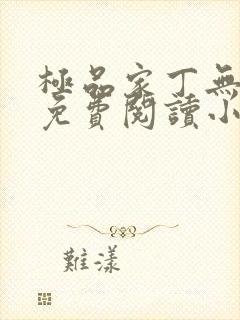 極品家丁無
免費閱讀小
難漾